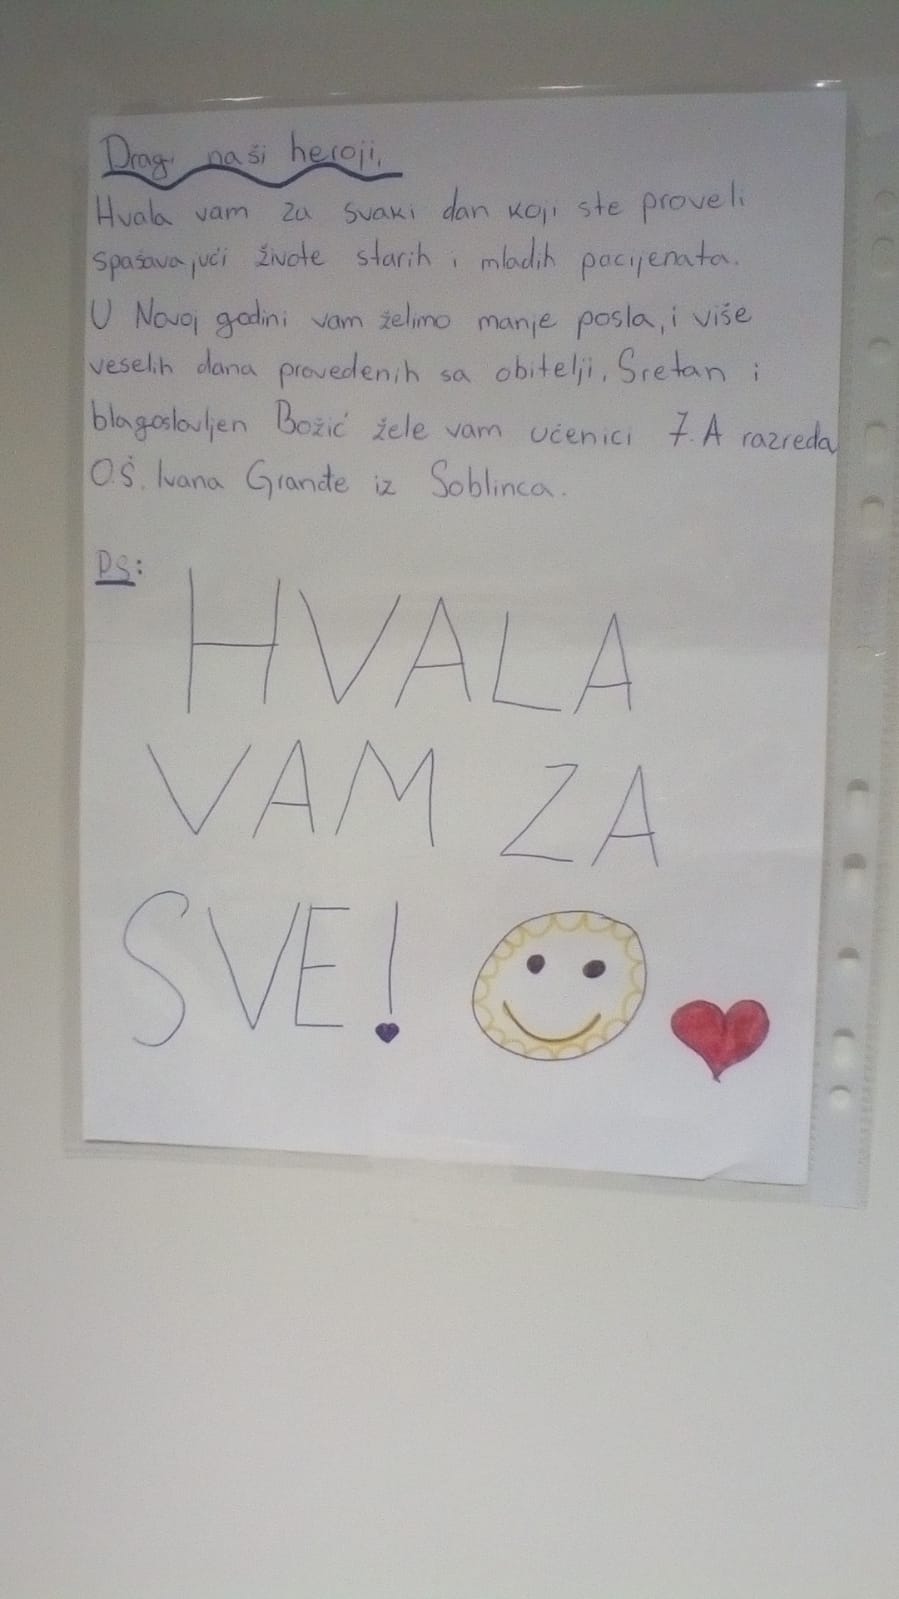 Dragi naši heroji,
Hvala vam za svaki dan koji ste proveli
spašavajući živote starih i mladih pacijenata.
U Novoj godini vam želimo manje posla, i više
veselih dana provedenih sa obitelji. Sretan i
blagoslovljen Božić žele vam učenici 7. A razreda
O.Š. Ivana Granđe iz Soblinca.
PS:
HVALA
VAM ZA
SVE!